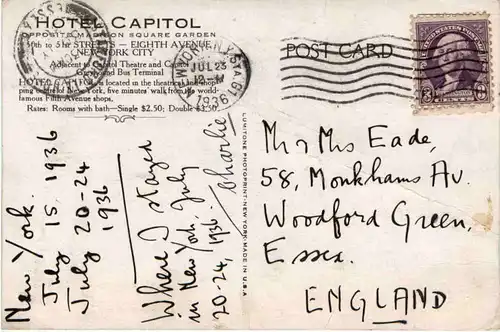 HOTEL CAPITOL
OPPOSITE MADISON SQUARE GARDEN
50th to 51st STREETS – EIGHTH AVENUE
NEW YORK CITY
Adjacent to Capitol Theatre and
Bus Terminal
HOTEL CAPITOL is located in the theatrical and shop-
ping centre of New York, five minutes' walk from the world-
famous Fifth Avenue shops.
Rates: Rooms with bath—Single $2.50; Double $3.50
JUL 23
1936
POST CARD
UNITED STATES POSTAGE
3
New York.
July 15 1936
July 20-24
1936
Where I stayed
in New York. July
20-24, 1936.
Charlie
LUMITONE PHOTOPRINT·NEW YORK·MADE IN U.S.A
Mr & Mrs Eade,
58, Monkhams Av.
Woodford Green,
Essex.
ENGLAND